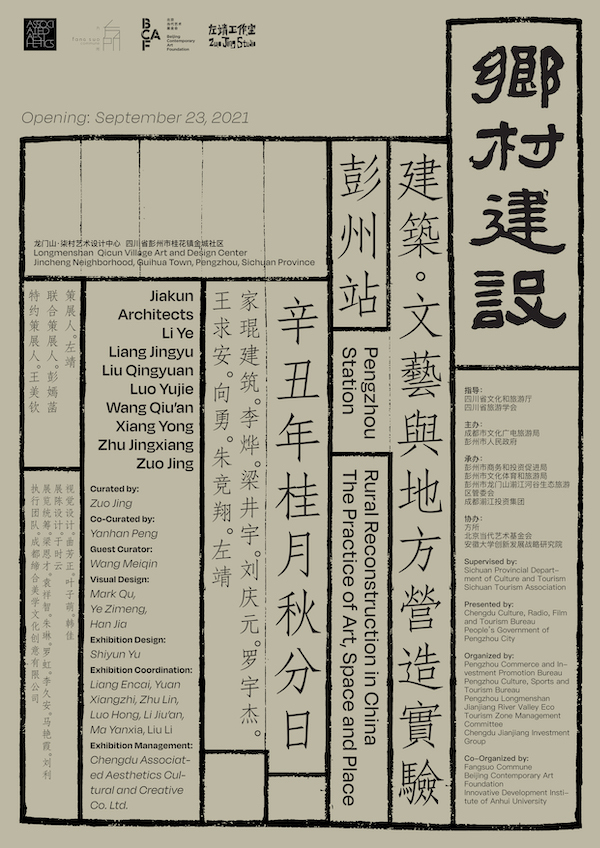 ASSOCI
ATED
AESTH
ETICS
BCAF
Beijing
Contemporary
Art
Foundation
左靖工作室
Zuo Jing Studio
Opening: September 23, 2021
鄉村建設
建築。文藝與地方營造實驗
彭州站
Pengzhou
Station
Rural Reconstruction in China
The Practice of Art, Space and Place
辛丑年桂月秋分日
龙门山·柒村艺术设计中心 四川省彭州市桂花镇金城社区
Longmenshan Qicun Village Art and Design Center
Jincheng Neighborhood, Guihua Town, Pengzhou, Sichuan Province
家琨建筑。李烨。梁井宇。刘庆元。罗宇杰。
王求安。向勇。朱竞翔。左靖
Jiakun
Architects
Li Ye
Liang Jingyu
Liu Qingyuan
Luo Yujie
Wang Qiu'an
Xiang Yong
Zhu Jingxiang
Zuo Jing
策展人。左靖
联合策展人。彭嫣菡
特约策展人。王美钦
Curated by:
Zuo Jing
Co-Curated by:
Yanhan Peng
Guest Curator:
Wang Meiqin
Visual Design:
Mark Qu,
Ye Zimeng,
Han Jia
Exhibition Design:
Shiyun Yu
Exhibition Coordination:
Liang Encai, Yuan
Xiangzhi, Zhu Lin,
Luo Hong, Li Jiu'an,
Ma Yanxia, Liu Li
Exhibition Management:
Chengdu Associat-
ed Aesthetics Cul-
tural and Creative
Co. Ltd.
视觉设计。曲芳正。叶子萌。韩佳
展陈设计。于时云
展览统筹。梁恩才。袁祥智。朱琳。罗虹。李久安。马艳霞。刘利
执行团队。成都缔合美学文化创意有限公司
指导:
四川省文化和旅游厅
四川省旅游学会
主办:
成都市文化广电旅游局
彭州市人民政府
承办:
彭州市商务和投资促进局
彭州市文化体育和旅游局
彭州市龙门山湔江河谷生态旅游
区管委会
成都湔江投资集团
协办:
方所
北京当代艺术基金会
安徽大学创新发展战略研究院
Supervised by:
Sichuan Provincial Depart-
ment of Culture and Tourism
Sichuan Tourism Association
Presented by:
Chengdu Culture, Radio, Film
and Tourism Bureau
People's Government of
Pengzhou City
Organized by:
Pengzhou Commerce and In-
vestment Promotion Bureau
Pengzhou Culture, Sports and
Tourism Bureau
Pengzhou Longmenshan
Jianjiang River Valley Eco
Tourism Zone Management
Committee
Chengdu Jianjiang Investment
Group
Co-Organized by:
Fangsuo Commune
Beijing Contemporary Art
Foundation
Innovative Development Insti-
tute of Anhui University